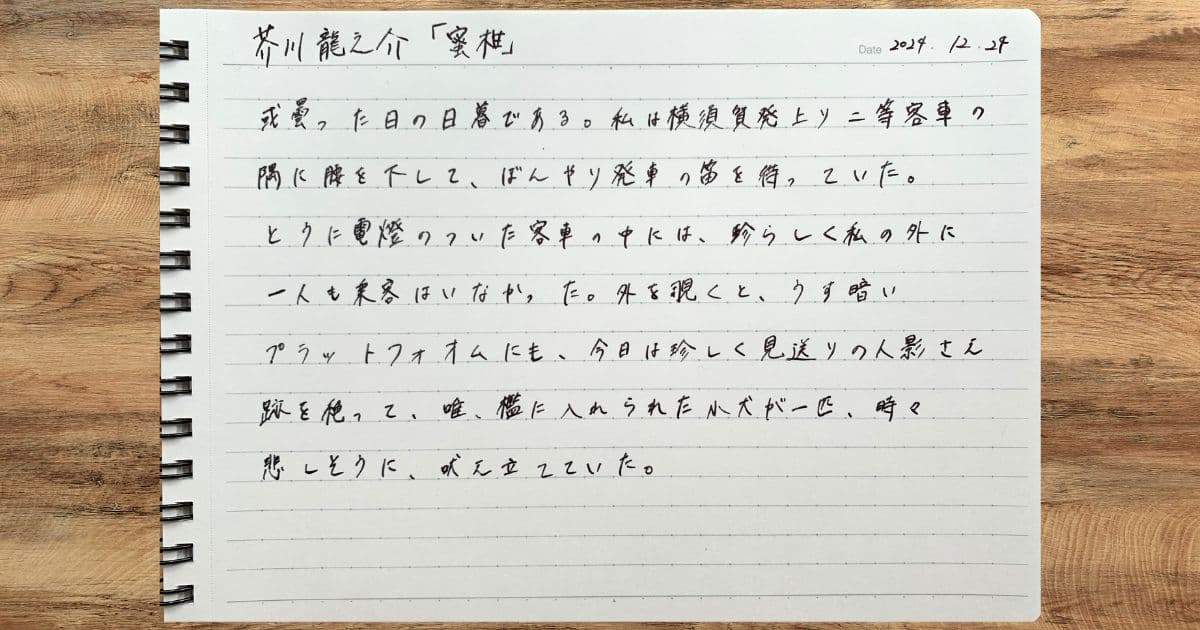 芥川龍之介「蜜柑」
Date 2024.12.24
或曇った日の日暮である。私は横須賀発上り二等客車の
隅に腰を下して、ぼんやり発車の笛を待っていた。
とうに電燈のついた客車の中には、珍らしく私の外に
一人も乗客はいなかった。外を覗くと、うす暗い
プラットフォオムにも、今日は珍しく見送りの人影さえ
跡を絶って、唯、檻に入れられた小犬が一匹、時々
悲しそうに、吠え立てていた。